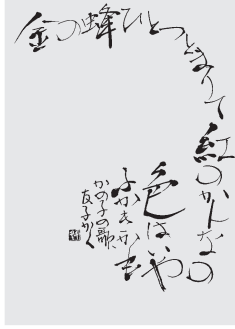 金の蜂ひとつとまりて紅のかんなの
色はいや
ふかきかも
かの子の歌
友子かく